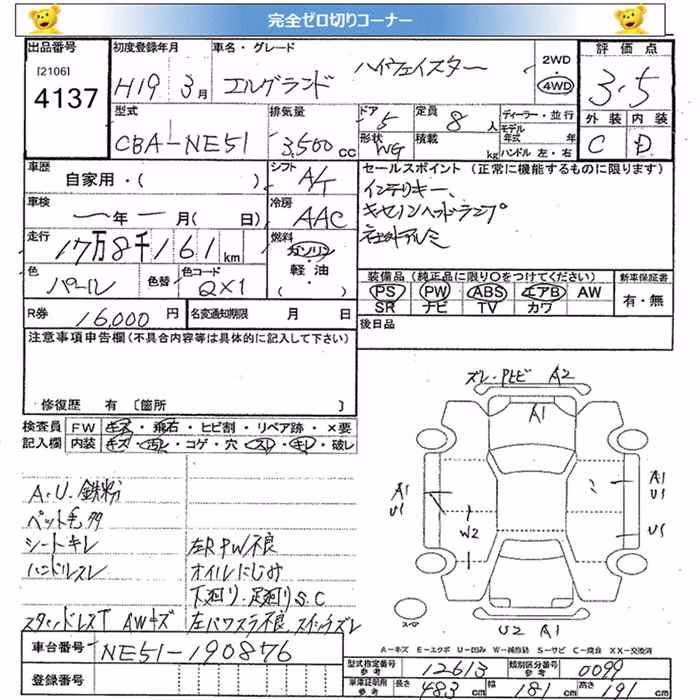 完全ゼロ切りコーナー
出品番号 初度登録年月 車名・グレード 2WD 評価点
[2106] H19 3月 エルグランド ハイウェイスター 4WD 3.5
4137
型式 排気量 ドア 定員 ディーラー・並行 外装 内装
CBA-NE51 3,500cc 5 8人 モデル年式 年 C D
形状 WG 積載 kg ハンドル 左・右
車歴 シフト セールスポイント(正常に機能するものに限ります)
自家用・( ) A/T インテリキー、
車検 冷房 キセノンヘッドランプ
年 月( 日) AAC 社外アルミ
走行 燃料
17万8千161km ガソリン
軽油
色 色替 色コード 装備品(純正品に限り○をつけてください) 新車保証書
パール QX1 PS PW ABS エアB AW 有・無
SR ナビ TV カワ
R券 16,000円 名変通知期限 月 日 後日品
注意事項申告欄(不具合内容等は具体的に記入して下さい)
修復歴 有 [箇所 ]
検査員 FW キズ・飛石・ヒビ割・リペア跡・×要
記入欄 内装 キズ・汚レ・コゲ・穴・スレ・キレ・破レ
ズレ・Pヒビ A2
A1
A1 U1 W2 A1 U1
U1
A.U.鉄粉
ペット毛多
シートキレ 左RPW不良
ハンドルスレ オイルにじみ
下廻り・足廻りS.C
スタッドレスT AWキズ 左パワスラ不良
スペア
U2 A1
A-キズ E-エクボ U-凹み W-補修跡 S-サビ C-腐食 XX-交換済
車台番号 NE51-190876
登録番号
型式指定番号 参考 12613 類別区分番号 参考 0099
車検証明形 参考 長さ 483 cm 幅 181 cm 高さ 191 cm